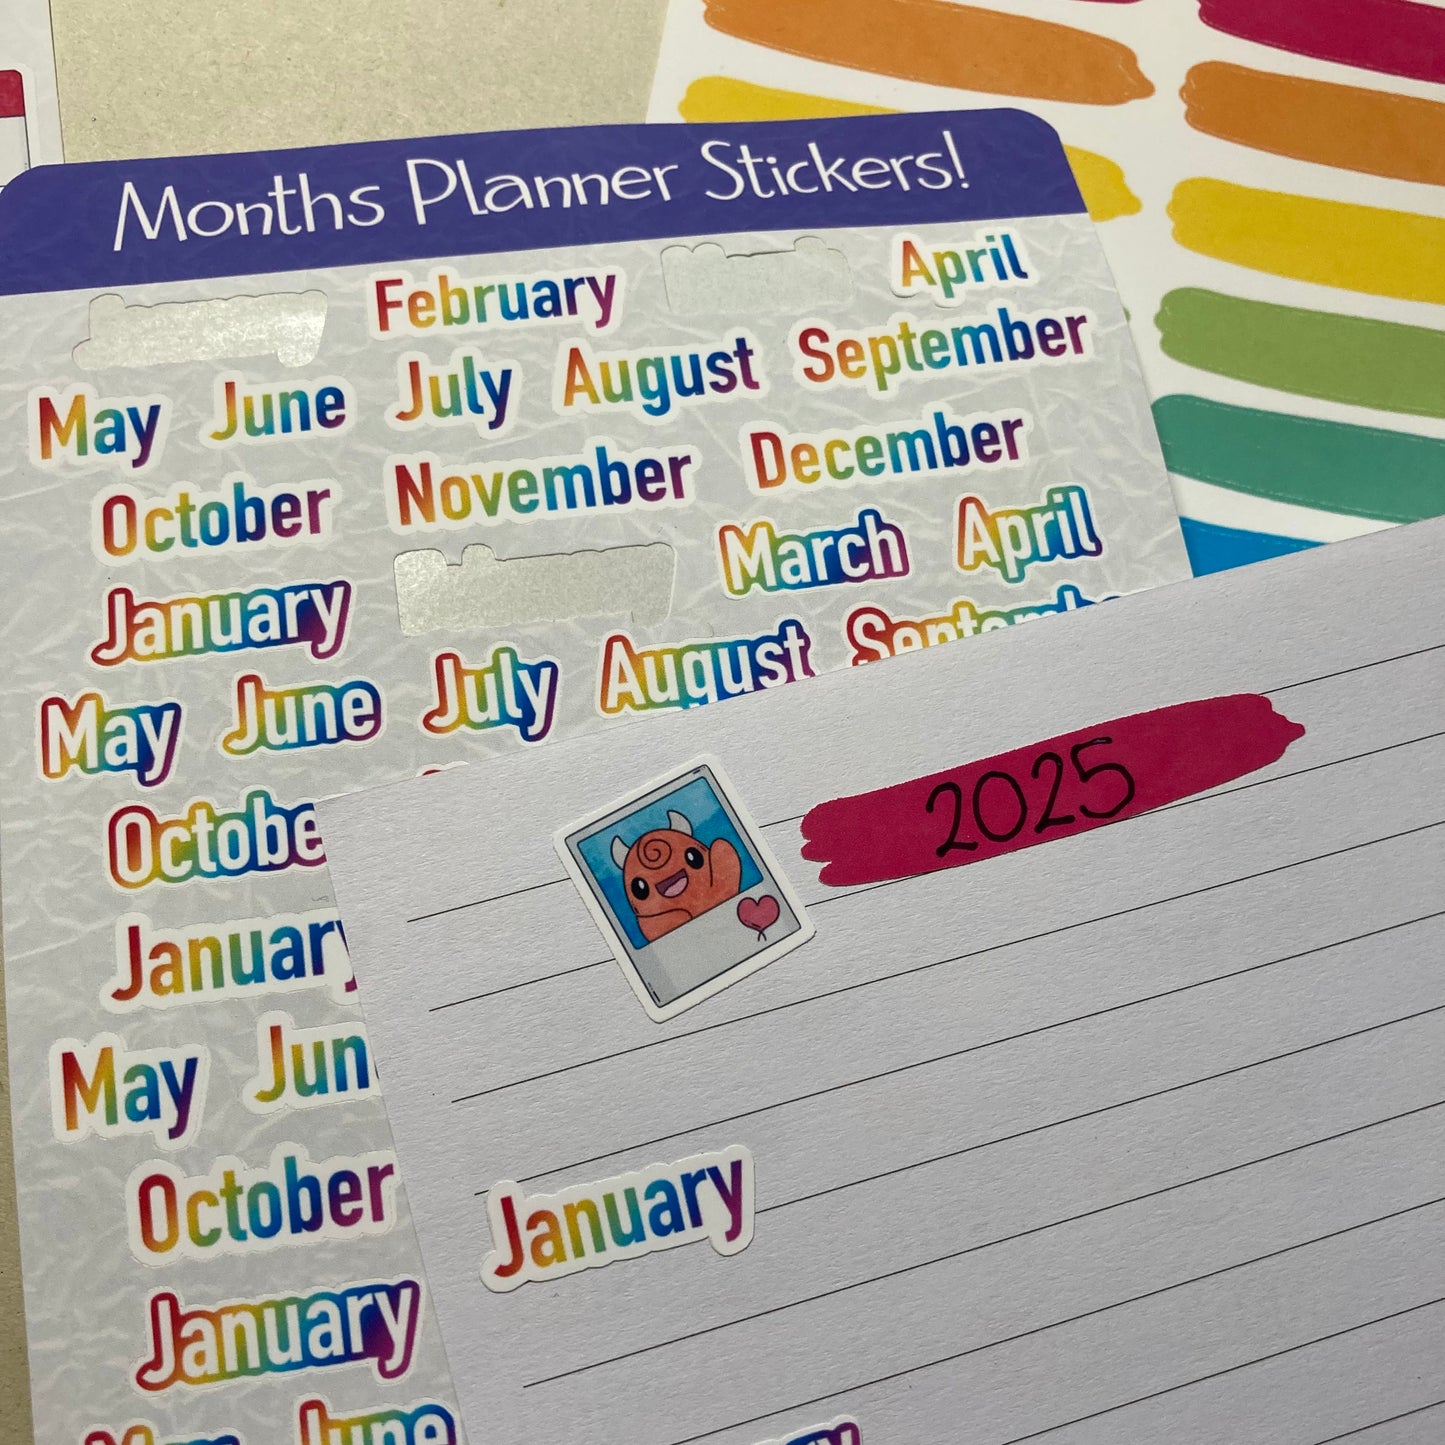 Months Planner Stickers!
February April
May June July August September
October November December
January March April
May June July August Septembe
Octobe
January
May Jun
October
January
June
2025
January